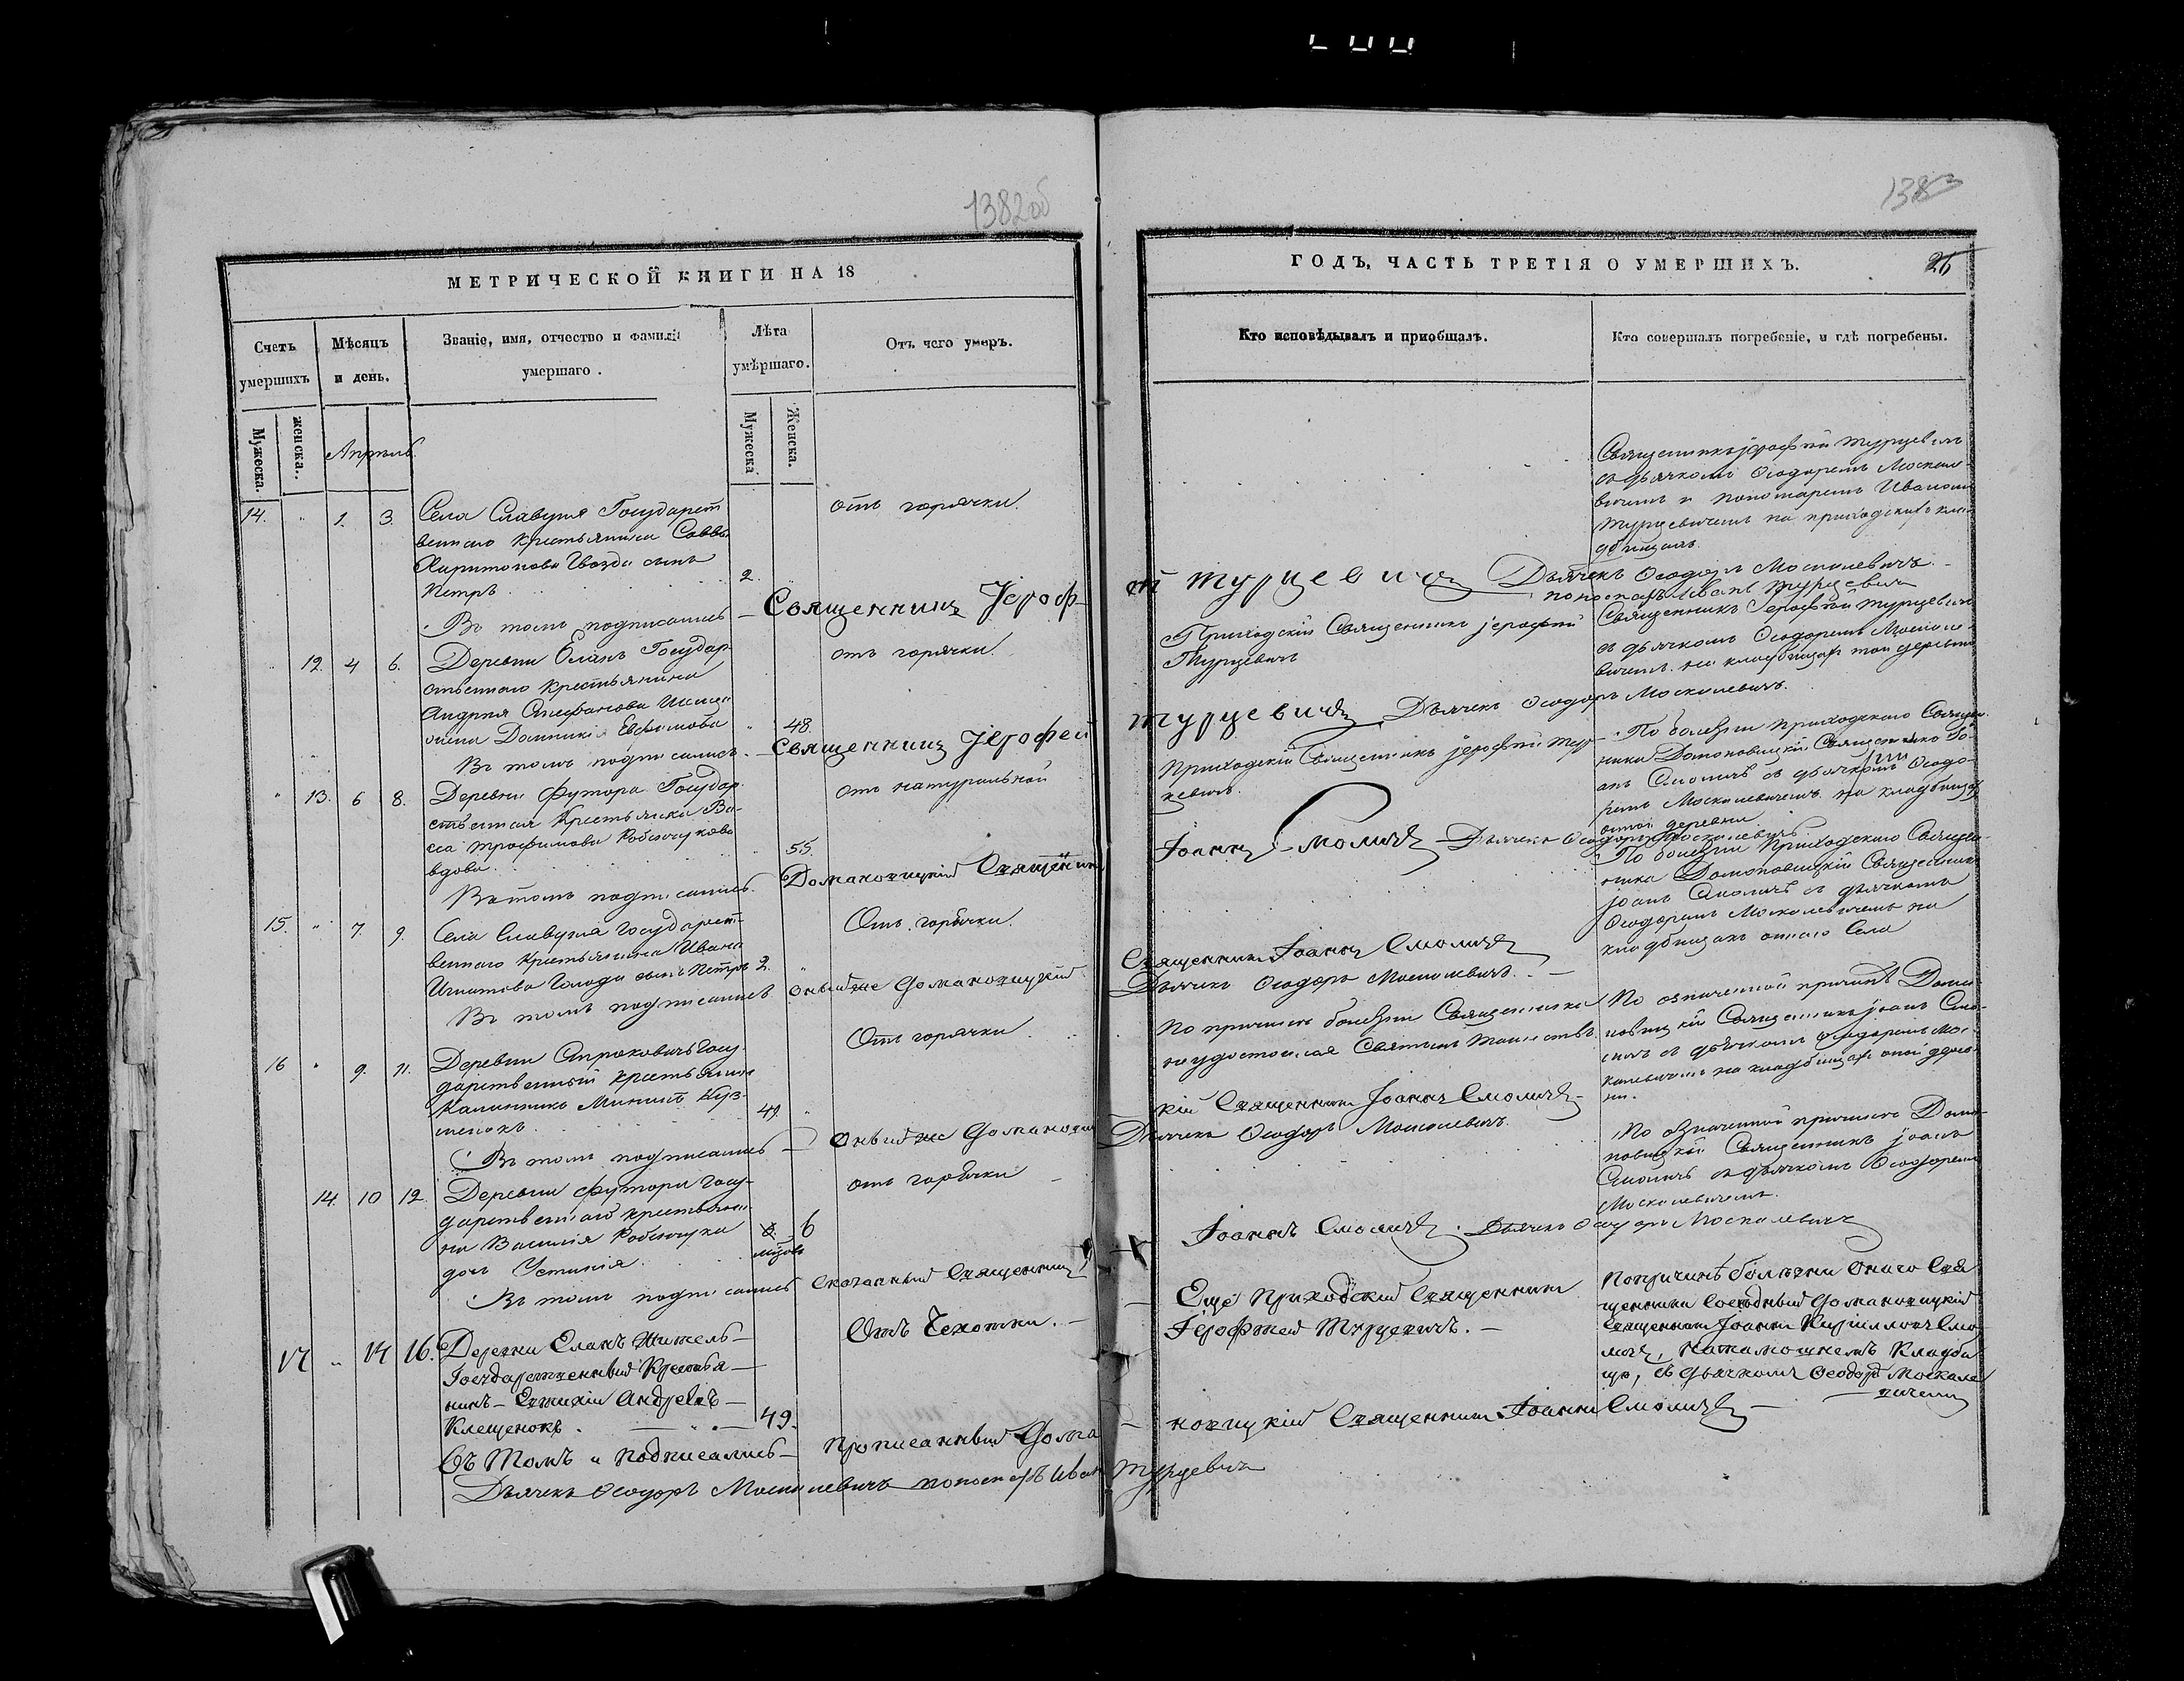 1382об
138
МЕТРИЧЕСКОЙ КНИГИ НА 18
ГОДЪ, ЧАСТЬ ТРЕТІЯ О УМЕРШИХЪ.
26
Счетъ умершихъ
Мѣсяцъ и день.
Званіе, имя, отчество и фамилія умершаго.
Лѣта умѣршаго.
Отъ чего умеръ.
Кто исповѣдывалъ и приобщалъ.
Кто совершалъ погребеніе, и гдѣ погребены.
Мужеска.
женска.
Мужеска
Женска.
Апрѣль
14. " 1. 3.
Села Славуня Государст
веннаго крестьянина Саввы
Харитонова Гвозда сынъ
Петръ
2.
отъ горячки.
Священникъ Іерофей Турцевичъ
съ дьячкомъ Ѳеодоромъ Москале-
вичемъ и пономаремъ Иваномъ
Турцевичемъ на приходскихъ кла-
дбищахъ.
Въ томъ подписались – Священникъ Іероф-
ей Турцевичъ Дьячекъ Ѳеодоръ Москалевичъ.
пономарь Иванъ Турцевичъ
" 12. 4 6.
Деревни Еланъ Государ
ственнаго крестьянина
Андрея
жена Домникія Евфимова
48.
отъ горячки.
Приходскій Священникъ Іерофей
Турцевичъ
Священникъ Іерофей Турцевичъ
съ дьячкомъ Ѳеодоромъ Москале-
вичемъ на кладбищахъ той деревни
Въ томъ подписались – Священникъ Іерофей
Турцевичъ Дьячекъ Ѳеодоръ Москалевичъ.
" 13. 6 8.
Деревни Футора Государ-
ственная Крестьянка Ва-
са Трофимова
вдова.
55.
отъ натуральной
Приходскій Священникъ Іерофей Тур-
цевичъ.
По болезни приходскаго Священ-
ника Домоновицкій Священникъ Іо-
анъ Смоличъ съ дьячкомъ Ѳеодо-
ромъ Москалевичемъ на кладбищахъ
оной деревни
Въ томъ подписались. Домановицкій Священникъ
Іоаннъ Смоличъ – Дьячекъ Ѳеодоръ Москалевичъ.
15. " 7. 9.
Села Славуня Государст-
веннаго крестьянина Ивана
Игнатова Голода сынъ Петръ
2.
Отъ горячки.
По болезни Приходскаго Священ-
ника Домоновицкій Священникъ
Іоанъ Смоличъ съ дьячкомъ
Ѳеодоромъ Москалевичемъ на
кладбищахъ онаго Села
Въ томъ подписались оный же Домановицкій
Священникъ Іоаннъ Смоличъ
Дьячекъ Ѳеодоръ Москалевичъ.
16 " 9. 11.
Деревни Гос
дарственный крестьянинъ
Калинникъ
49. "
Отъ горячки
По причинѣ болезни Священника
неудостоился Святыхъ Таинствъ
По означенной причинѣ Домо-
новицкій Священникъ Іоанъ Смо-
личъ съ дьячкомъ Ѳеодоромъ Мос-
калевичемъ на кладбищахъ оной дерев-
ни.
Въ томъ подписались – Оный же Домановиц
кій Священникъ Іоаннъ Смоличъ –
Дьячекъ Ѳеодоръ Москалевичъ.
14. 10 12.
Деревни Футора Госу-
дарственнаго крестьяни-
на Василія
дочь Устинія.
6
отъ горячки
По означенной причинѣ Домо-
новицкій Священникъ Іоанъ
Смоличъ съ дьячкомъ Ѳеодоромъ
Москалевичемъ.
Въ томъ подписались Сказанный Священникъ
Іоаннъ Смоличъ. Дьячекъ Ѳеодоръ Москалевичъ
17 " 14 16.
Деревни Еланъ Житель –
Государственный Крестья –
нинъ – Андреевъ –
Клещенокъ.
49.
Отъ Чехотки. –
Еще Приходскій Священникъ
Іерофтей Турцевичъ. –
По причинѣ болѣзни Онаго Свя
щенника Соседный Домановицкій
Священникъ Іоаннъ Кирилловъ Смо
личъ, На тамошнемъ Кладби
щѣ, съ Дьячкомъ Ѳеодоръ Москале
вичемъ
Въ Томъ и подписались – прописанный Дома
новицкій Священникъ Іоаннъ Смоличъ –
Дьячекъ Ѳеодоръ Москалевичъ пономарь Иванъ Турцевичъ